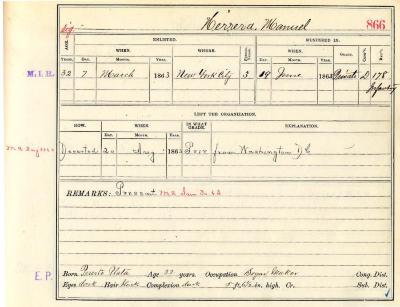 Herrera, Manuel 866
ENLISTED. MUSTERED IN.
AGE. WHEN. WHERE. WHEN. GRADE. CO'Y. REG'T.
YEARS. DAY. MONTH. YEAR. DAY. MONTH. YEAR.
M.I.R. 32 7 March 1863 New York City 3 19 June 1863 Private D 178
Infantry
LEFT THE ORGANIZATION.
HOW. WHEN IN WHAT GRADE. EXPLANATION.
DAY. MONTH. YEAR.
Deserted 20 Aug 1863 Priv from Washington D C
REMARKS: Present
E.P. Born Puerto Plata Age 32 years Occupation Segar Maker Cong. Dist.
Eyes dark Hair black Complexion dark 5 ft. 6½ in. high. Cr. Sub. Dist.